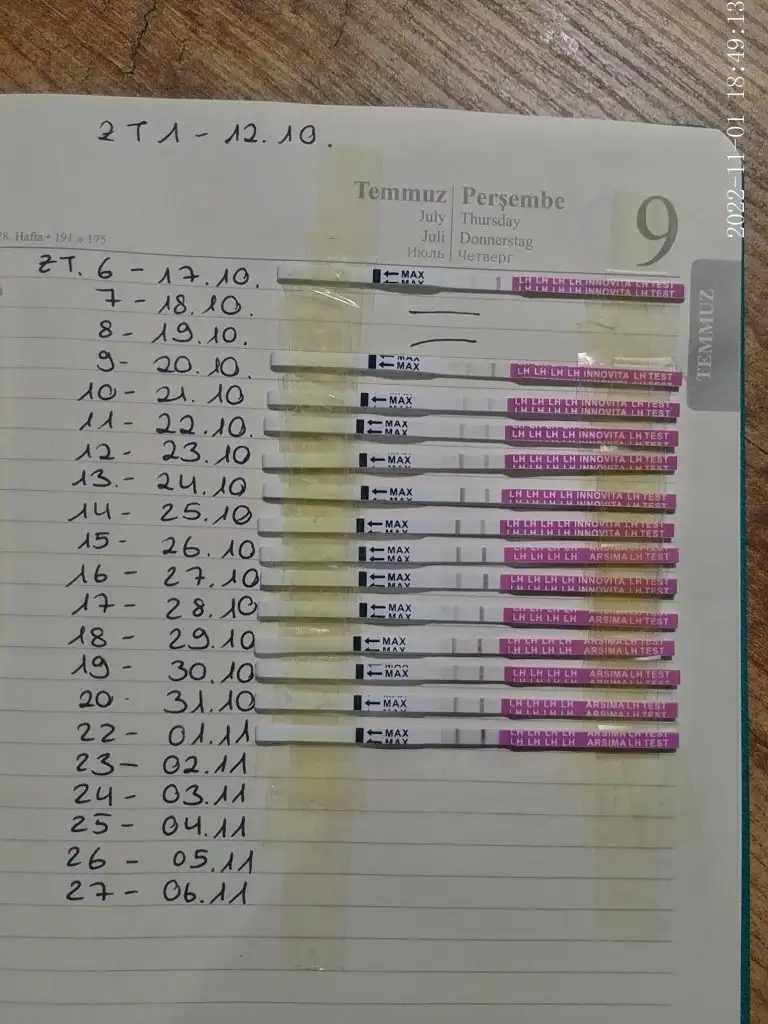 2022-11-01 18:49:13
ZT 1 - 12.10.
Temmuz Perşembe 9
July Thursday
Juli Donnerstag
Июль Четверг
28. Hafta • 191 » 175
TEMMUZ
ZT. 6 - 17.10. ← MAX LH LH LH LH INNOVITA LH TEST
7 - 18.10. —
8 - 19.10. —
9 - 20.10. ← MAX LH LH LH LH INNOVITA LH TEST
10 - 21.10 ← MAX LH LH LH LH INNOVITA LH TEST
11 - 22.10. ← MAX LH LH LH LH INNOVITA LH TEST
12 - 23.10 ← MAX LH LH LH LH INNOVITA LH TEST
13. - 24.10 ← MAX LH LH LH LH INNOVITA LH TEST
14 - 25.10 ← MAX LH LH LH LH INNOVITA LH TEST
15 - 26.10 ← MAX LH LH LH LH ARSIMA LH TEST
16 - 27.10 ← MAX LH LH LH LH INNOVITA LH TEST
17 - 28.10 ← MAX LH LH LH LH ARSIMA LH TEST
18 - 29.10 ← MAX LH LH LH LH ARSIMA LH TEST
19 - 30.10 ← MAX LH LH LH LH ARSIMA LH TEST
20 - 31.10 ← MAX LH LH LH LH ARSIMA LH TEST
22 - 01.11 ← MAX LH LH LH LH ARSIMA LH TEST
23 - 02.11
24 - 03.11
25 - 04.11
26 - 05.11
27 - 06.11